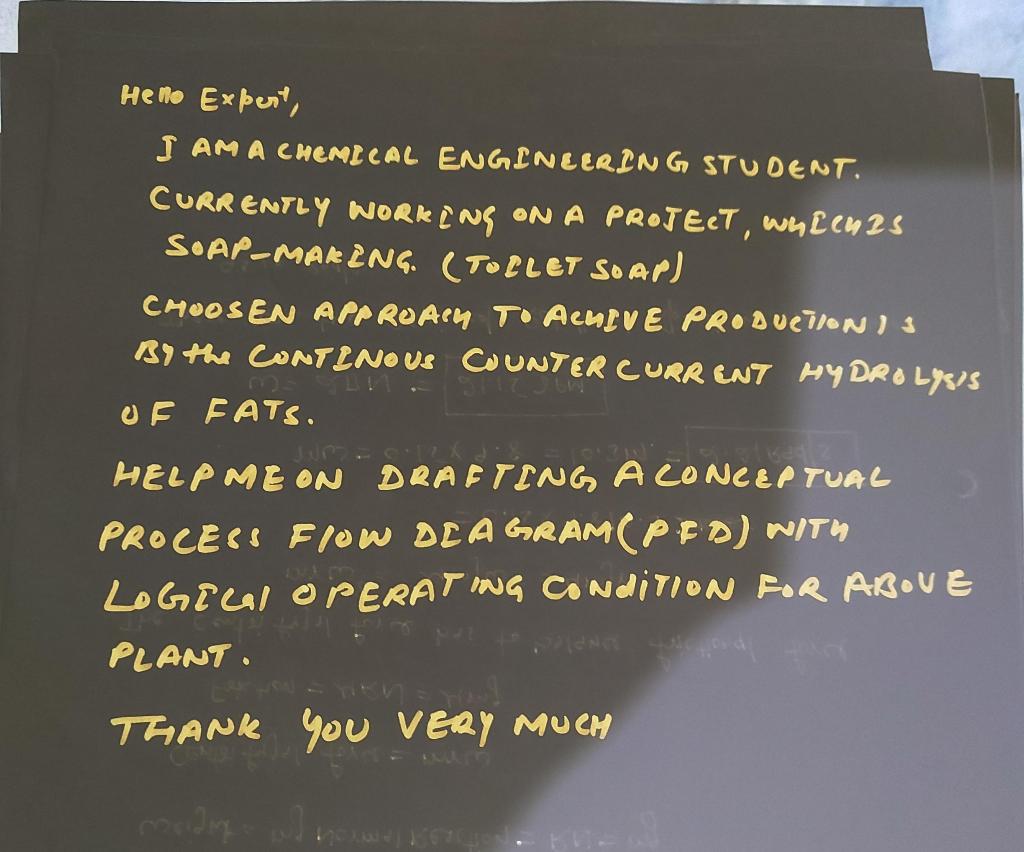 Hello Expert,
I AM A CHEMICAL ENGINEERING STUDENT.
CURRENTLY WORKING ON A PROJECT, WHICH IS
SOAP-MAKING. (TOILET SOAP)
CHOOSEN APPROACH TO ACHIVE PRODUCTION IS
By the CONTINOUS COUNTER CURRENT HYDROLYSIS
OF FATS.
HELP ME ON DRAFTING A CONCEPTUAL
PROCESS FLOW DIAGRAM (PFD) WITH
LOGICAL OPERATING CONDITION FOR ABOVE
PLANT.
THANK YOU VERY MUCH